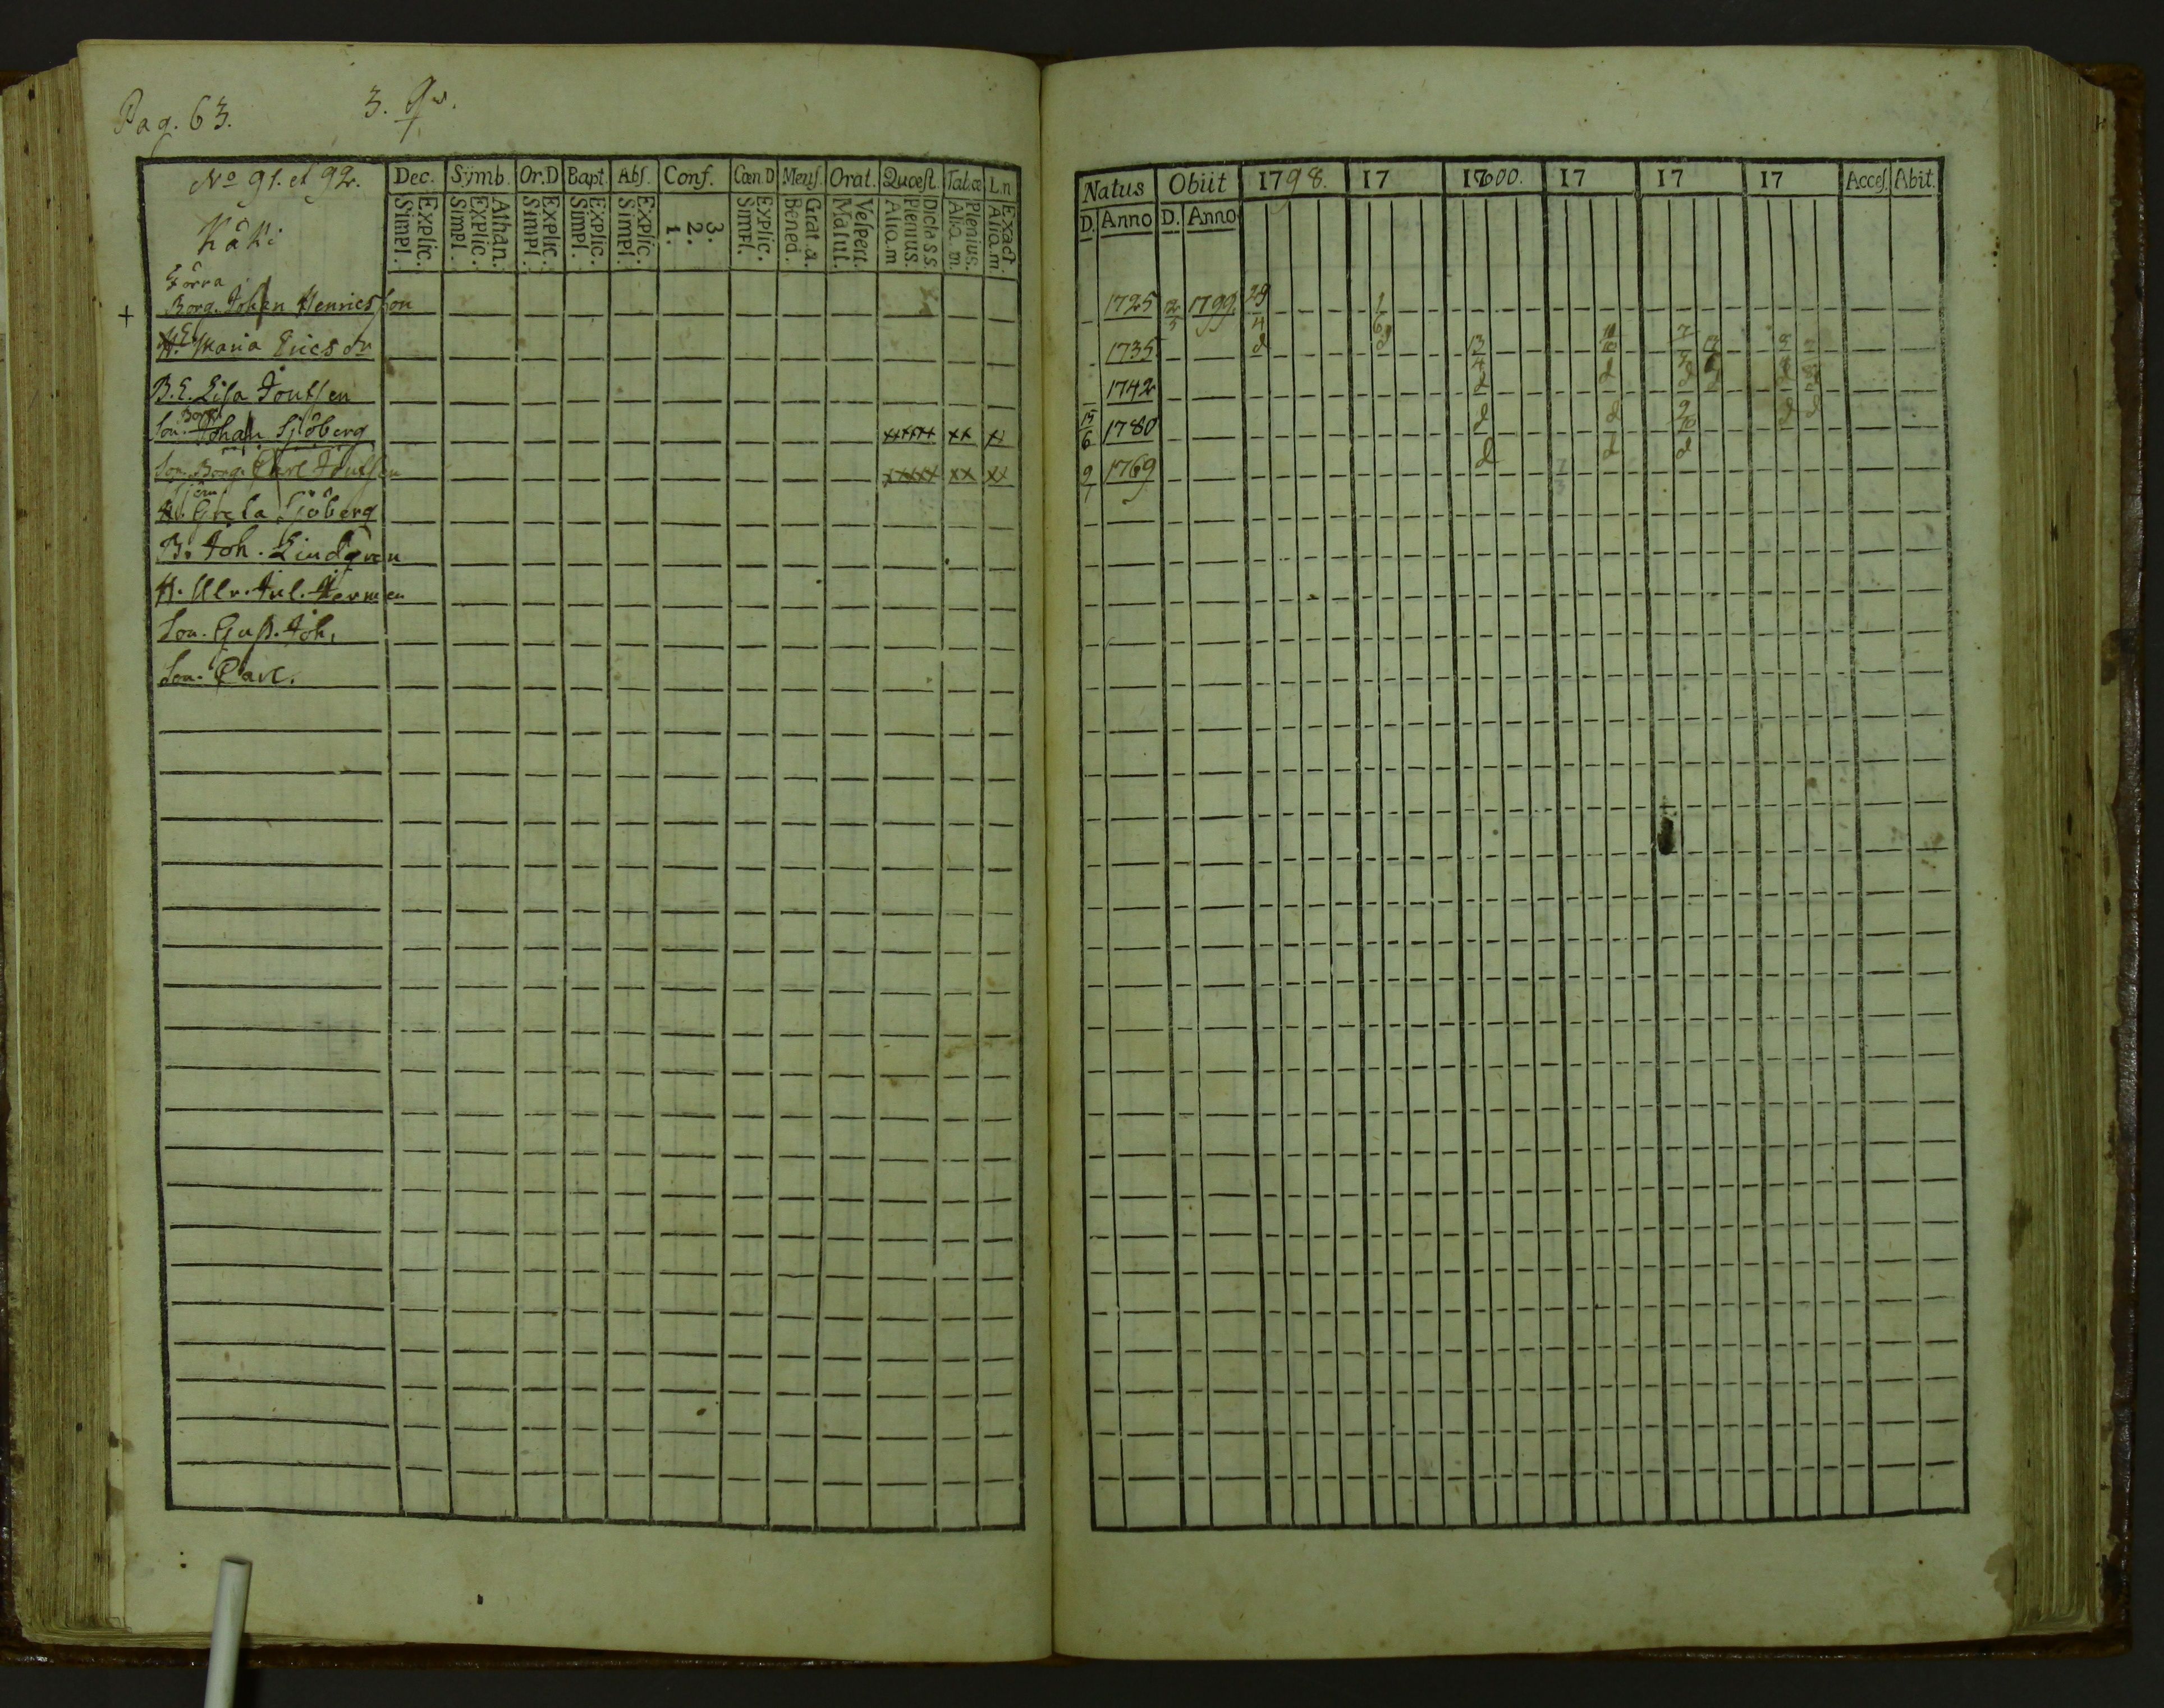 Pag. 63. 3. Qv.
No 91. et 92. Dec. Sÿmb. Or.D Bapt. Abs. Conf. Cœn.D Mens. Orat. Quœst. Tab.œ L.n
Kåki Explic. Simpl. Athan. Explic. Simpl. Explic. Simpl. Explic. Simpl. Explic. Simpl. 3. 2. 1. Explic. Simpl. Grat. a. Bened. Vespert. Matut. Dicta S.S. Plenius. Aliq.m Plenius. Aliq.m. Exact. Aliq.m
Förra
+ Borg. Johan Henricsson
H. E. Maria Erics dr
B. E. Lisa Joutsen
Son. Borg. Johan Sjöberg xxxxx xx x
Son. Borg. Carl Joutsen xxxxx xx xx
H. Greta Sjöberg
B. Joh. Lindgren
H. Ulr. Jul.
Son. Gust. Joh.
Son. Carl.
Natus Obiit 1798. 17 1800. 17 17 17 Acces. Abit.
D. Anno D. Anno
1725 2/5 1799 29/4 1/6
1735 d d 13/4
1742 d d d d
15/6 1780 d d 9/10 d d
9/7 1769 d d d